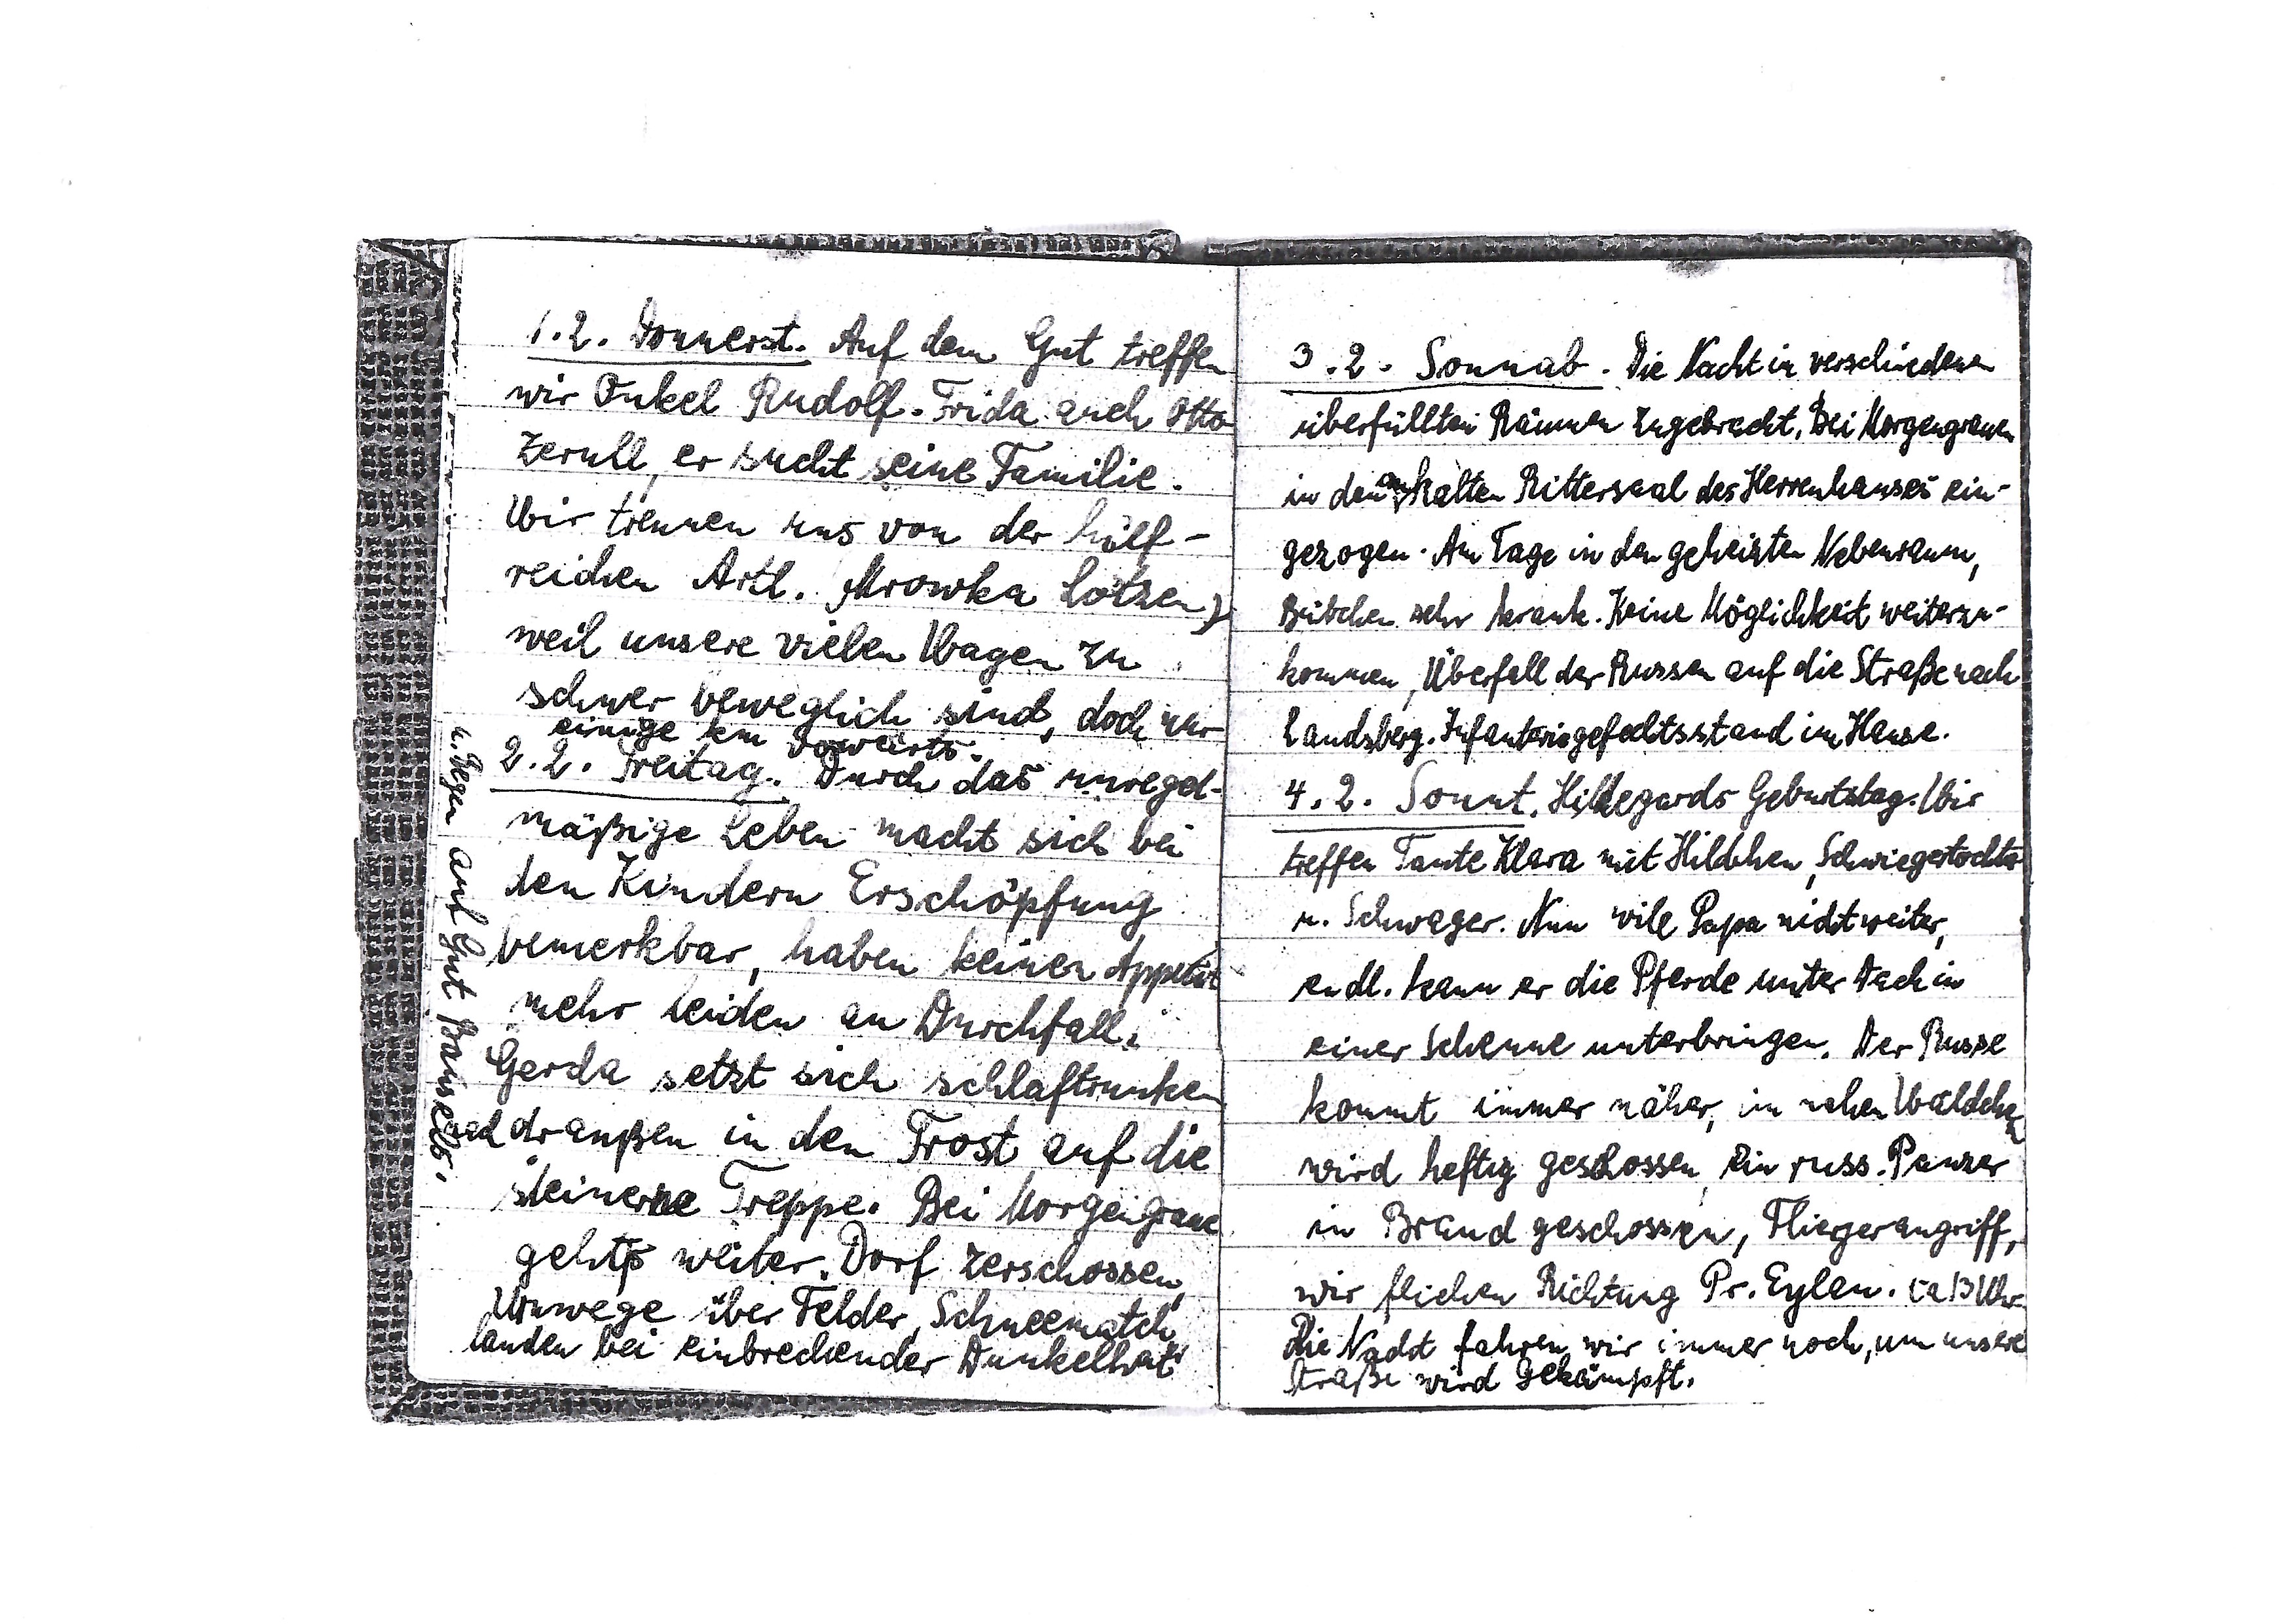 1.2. Donnerst. Auf dem Gut treffen
wir Onkel Rudolf. Frida auch Otto
Zerull, er sucht seine Familie.
Wir trennen uns von der hilf-
reichen Artl. (Mrowka Lötzen)
weil unsere vielen Wagen zu
schwer beweglich sind, doch nur
einige km vorwärts.
2.2. Freitag. Durch das unregel-
mäßige Leben macht sich bei
den Kindern Erschöpfung
bemerkbar, haben keinen Appetit
mehr leiden an Durchfall.
Gerda setzt sich schlaftrunken
draußen in den Frost auf die
steinerne Treppe. Bei Morgengraue
gehts weiter. Dorf zerschossen,
Umwege über Felder, Schneematch
landen bei einbrechender Dunkelheit
u. Regen auf Gut
3.2. Sonnab. Die Nacht in verschiedenen
überfüllten Räumen zugebracht. Bei Morgengrauen
in den kalten Rittersaal des Herrenhauses ein-
gezogen. Am Tage in den geheizten Nebenraum,
sehr krank. Keine Möglichkeit weiterzu-
kommen, Überfall der Russen auf die Straße nach
Landsberg. Infanteriegefechtsstand im Hause.
4.2. Sonnt. Hildegards Geburtstag. Wir
treffen Tante Klara mit Hildchen, Schwiegertochter
u. Schwager. Nun will Papa nicht weiter,
endl. kann er die Pferde unter Dach in
einer Scheune unterbringen. Der Russe
kommt immer näher, im nahen Wäldchen
wird heftig geschossen, ein russ. Panzer
in Brand geschossen, Fliegerangriff,
wir fliehen Richtung Pr. Eylau. ca 13 Uhr
Die Nacht fahren wir immer noch, um unsere
Straße wird gekämpft.